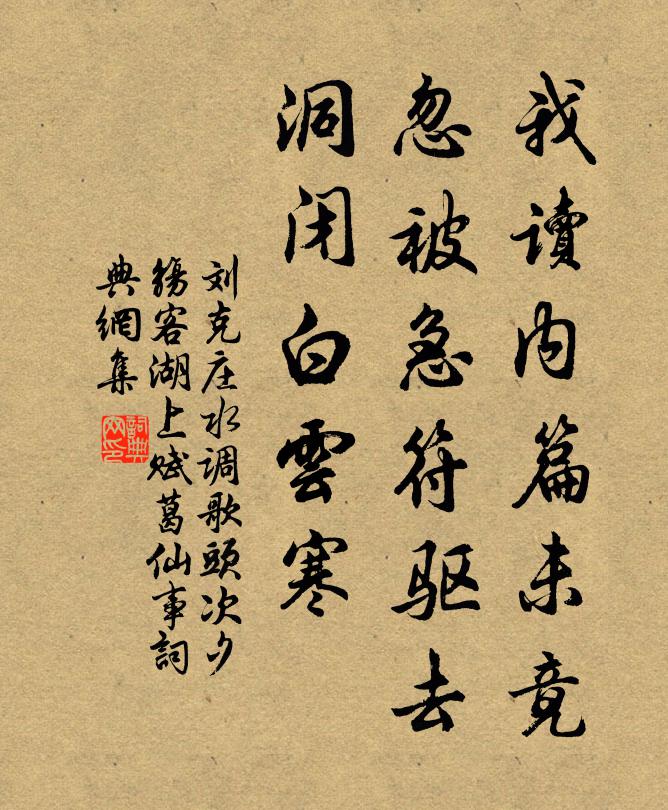 我读内篇未竟
忽被急符驱去
洞闭白雲寒
刘克庄水调歌頭次夕
觴客湖上赋葛仙事詞
典網集
詞典
网印